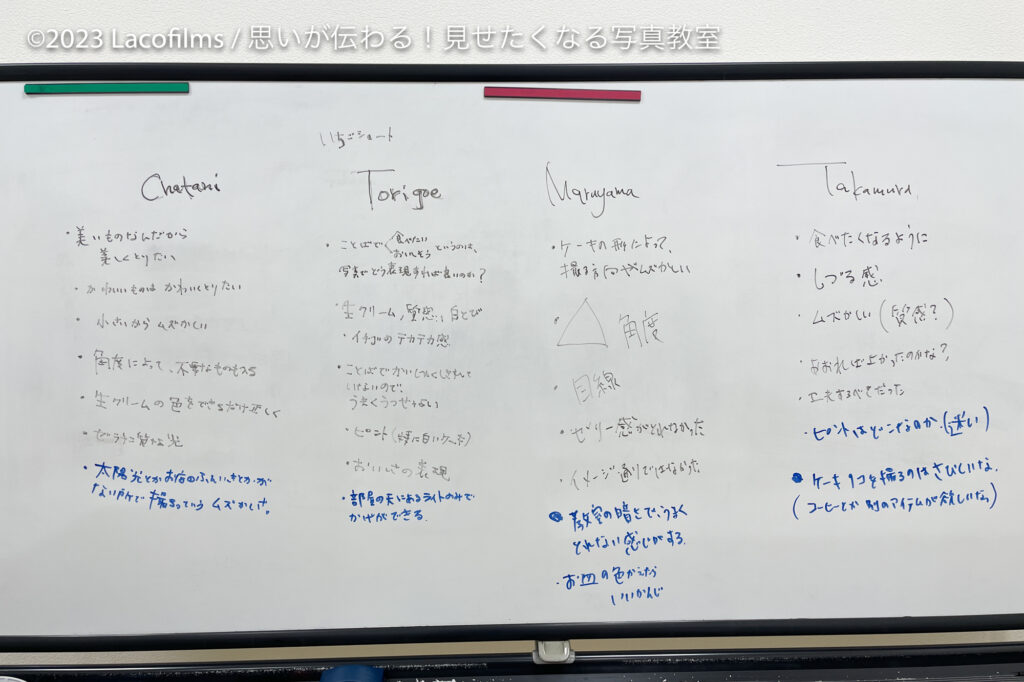 ©2023 Lacofilms / 思いが伝わる！見せたくなる写真教室
いちごショート
Chatani
・美いものなんだから
美しくとりたい
・かわいいものは かわいくとりたい
・小さいから ムズかしい
・角度によって、不要なものも入る
・生クリームの色をできるだけ
・光
・太陽光とかお店のふんいきとかが
ない所で撮るっていう ムズかしさ。
Torigoe
・ことばで
食べたい
おいしそう
というのは、
写真でどう表現すれば良いのか？
・生クリーム,質感,,白とび
・イチゴのテカテカ感
・ことばでかいしゃくしきれて
いないので、
うまくうつせない
・ピント
・おいしさの表現
・部屋の天にあるライトのみで
かげができる.
Maruyama
・ケーキの種によって、
撮る方向がムズかしい
・△ 角度
・目線
・ゼリー感がとれなかった
・イメージ通りではなかった
・教室の暗さで、うまく
とれない感じがする.
・お皿の色かえたら
いいかんじ
Takamura
・食べたくなるように
・しづる感
・ムズかしい (質感？)
・よかったのかな？
・工夫するべきだった
・ピントはどこなのか.(迷い)
・ケーキ1コを撮るのはさびしいな.
(コーヒーとか 別のアイテムが欲しいなぁ)